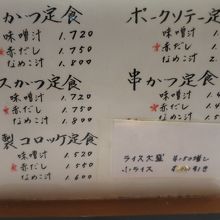 かつ定食
味噌汁 1.720
赤だし 1.750
なめこ汁 1.800
スかつ定食
味噌汁 1.720
赤だし 1.750
なめこ汁 1.800
製コロッケ定食
味噌汁 1.520
赤だし 1.550
なめこ汁 1.600
ポークソテー定食
味噌汁
赤だし 1.
なめこ汁 1.
串かつ定食
味噌汁 1.
赤だし 1.
なめこ汁 1.
ライス大盛
小ライス